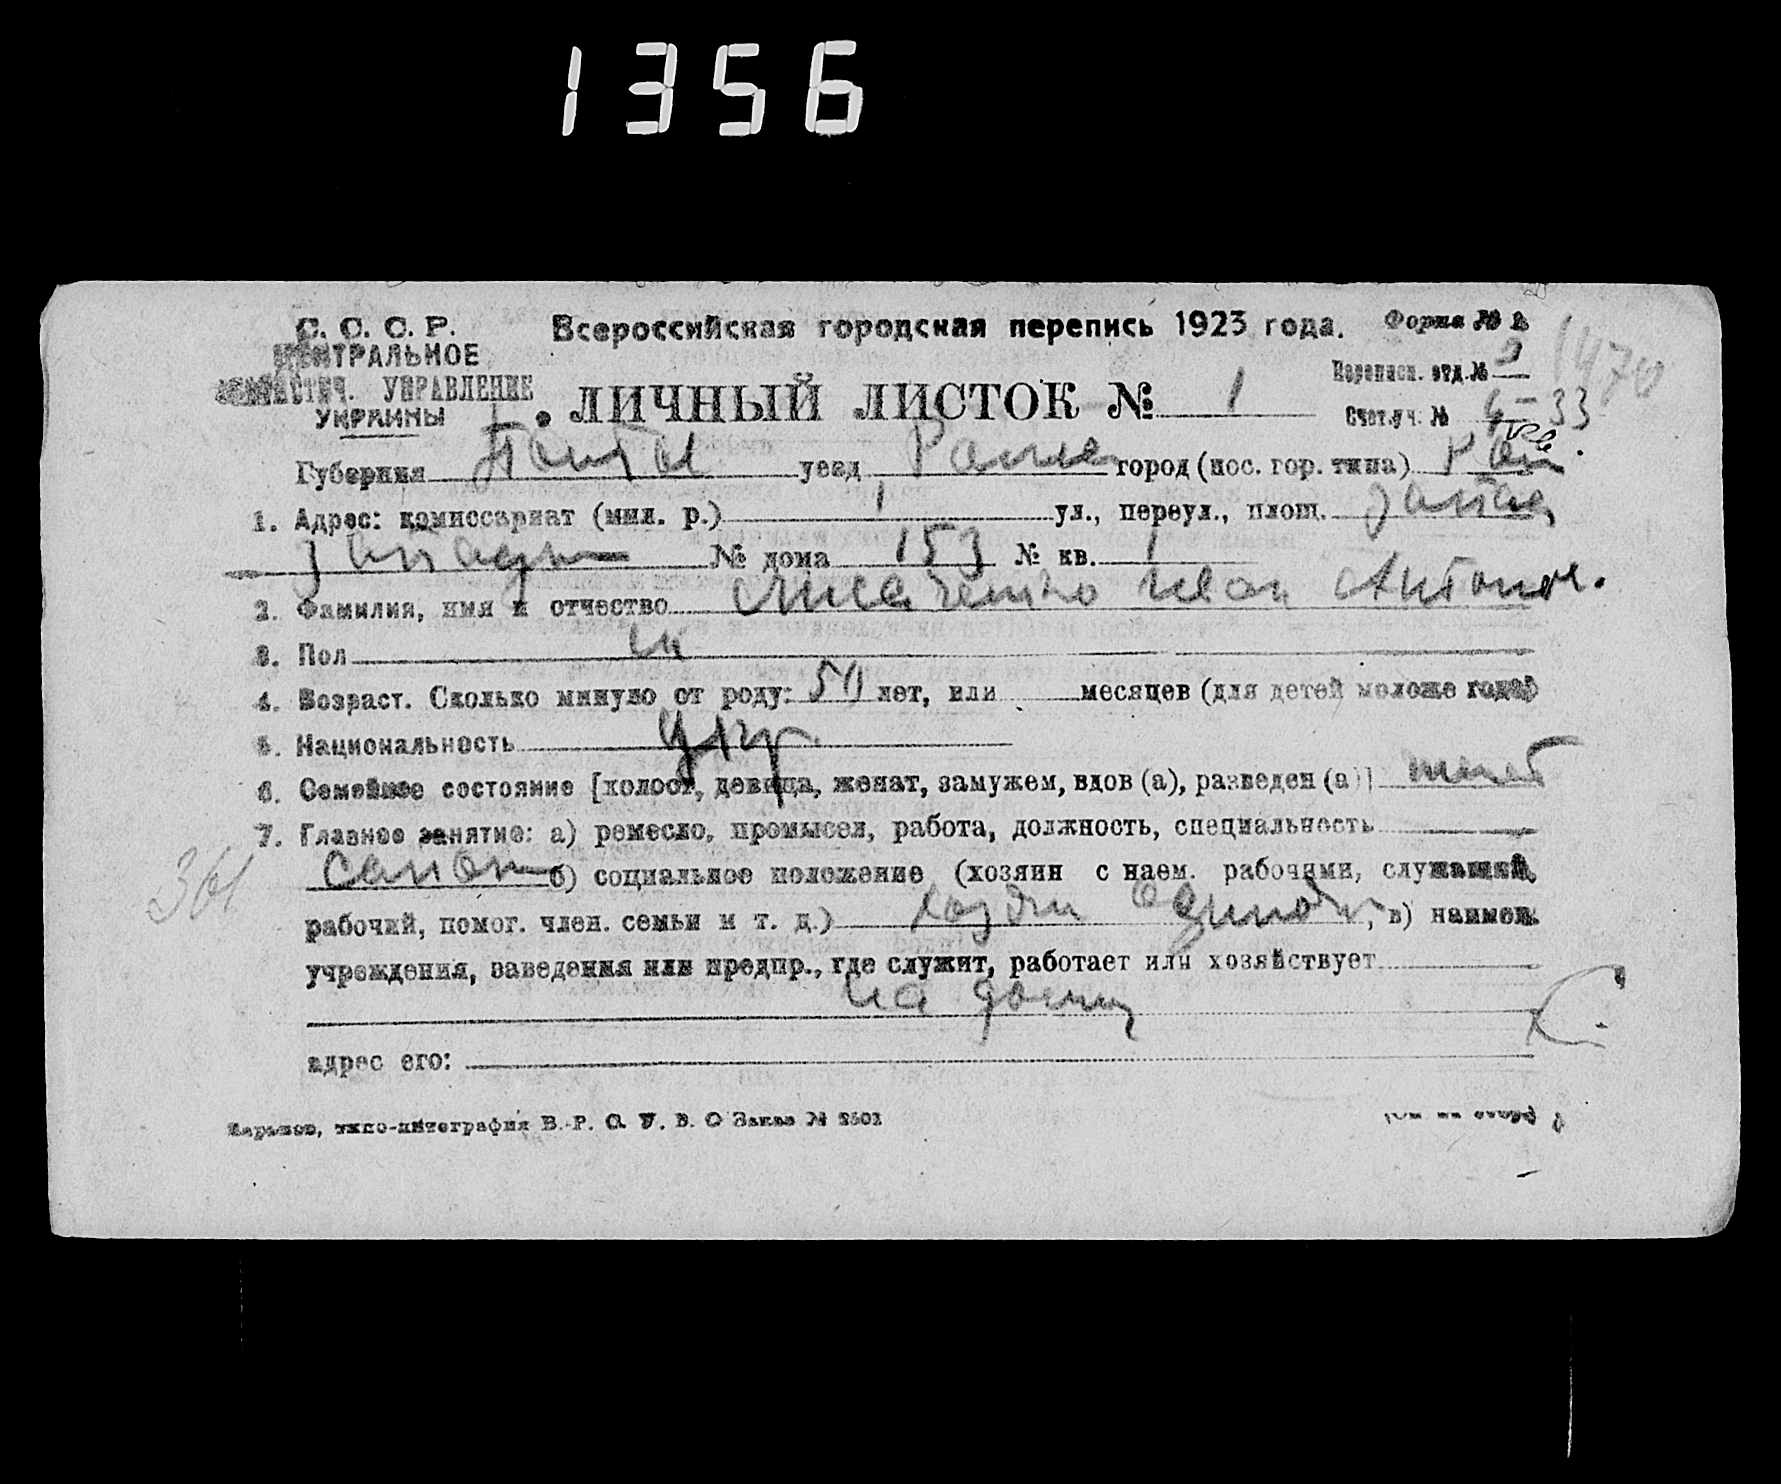 1356
С. С. С. Р. Всероссийская городская перепись 1923 года. Форма № 2
ЦЕНТРАЛЬНОЕ
СТАТИСТИЧ. УПРАВЛЕНИЕ
УКРАИНЫ
Переписн. отд. № 1470
ЛИЧНЫЙ ЛИСТОК № 1
Счет. уч. № 33
Губерния уезд Ромен город (пос. гор. типа)
1. Адрес: комиссариат (мил. р.) 1 ул., переул., площ.
№ дома 153 № кв. 1
2. Фамилия, имя и отчество Лисаченко Иван Антонов.
3. Пол м
4. Возраст. Сколько минуло от роду: 50 лет, или месяцев (для детей моложе года)
5. Национальность Укр
6. Семейное состояние [холост, девица, женат, замужем, вдов (а), разведен (а)] женат
7. Главное занятие: а) ремесло, промысел, работа, должность, специальность
сапожн б) социальное положение (хозяин с наем. рабочими, служащий,
361
рабочий, помог. член. семьи и т. д.) одиноч, в) наимен.
учреждения, заведения или предпр., где служит, работает или хозяйствует
на дому
адрес его:
Харьков, типо-литография В. Р. С. У. В. О Заказ № 2602